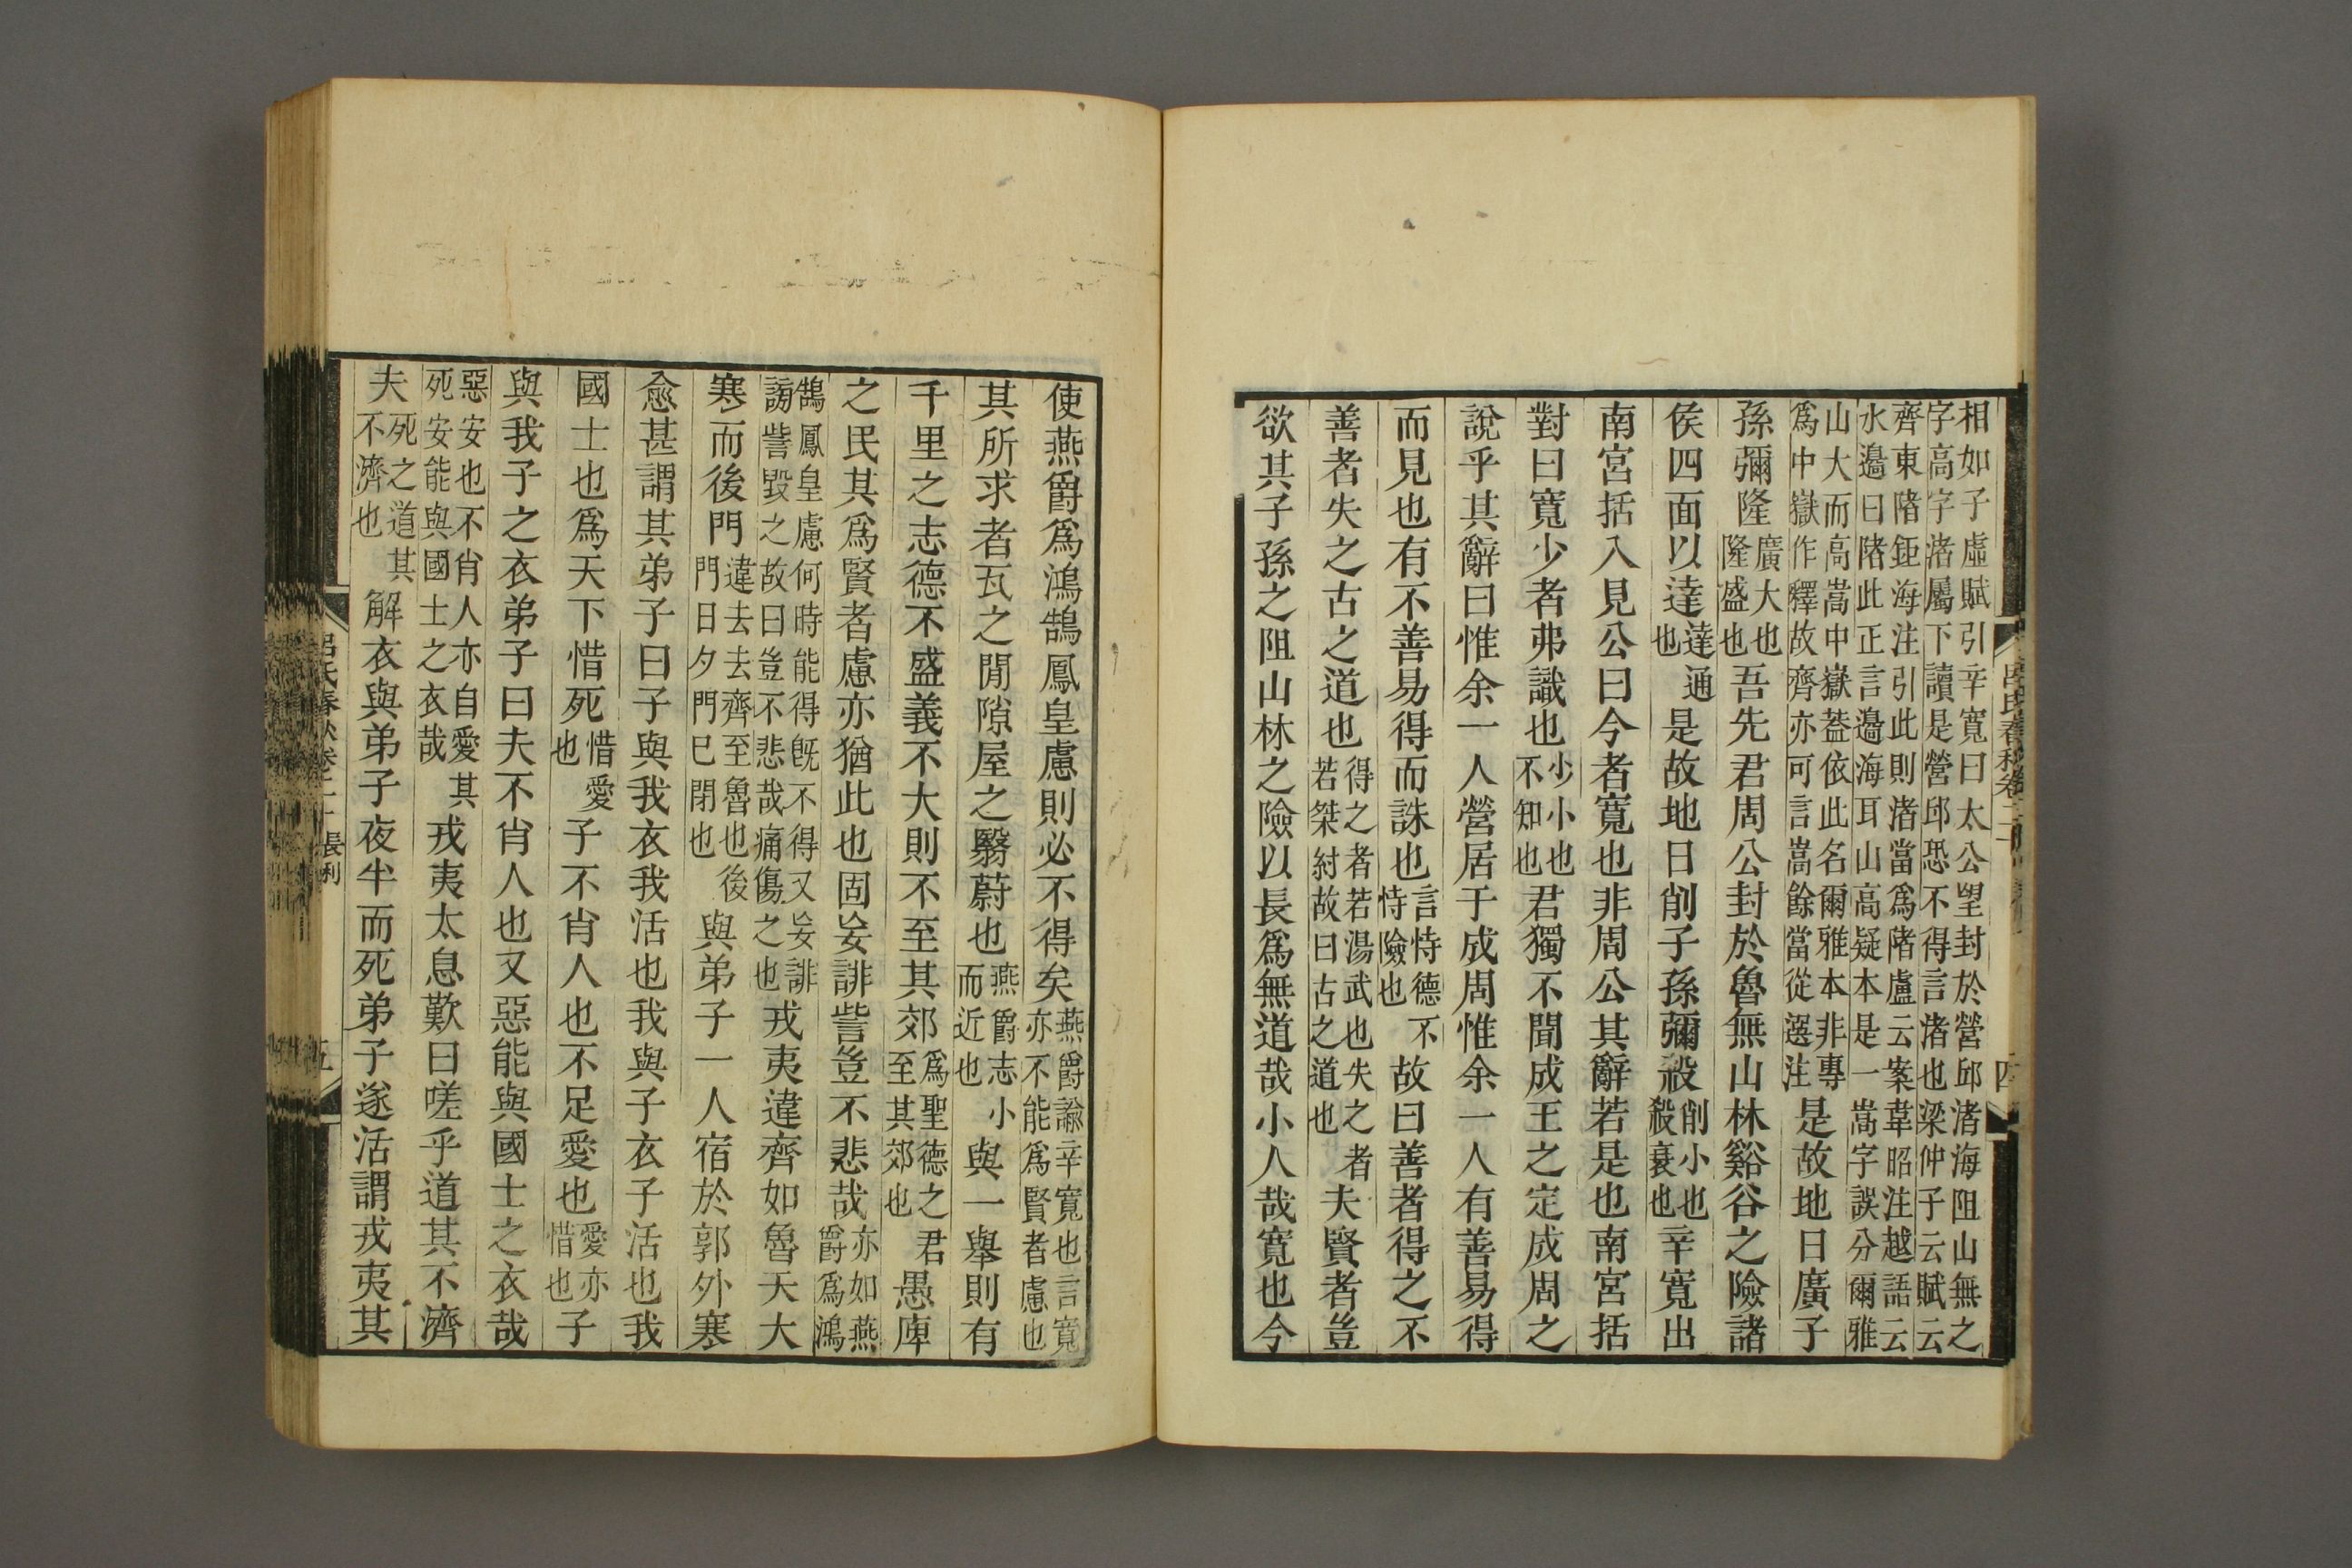 相如子虛賦引辛寬曰太公望封於營邱渚海阻山無之
字高字渚屬下讀是營邱恐不得言渚也梁仲子云賦云
齊東陼鉅海注引此則渚當爲陼盧云案韋昭注越語云
水邊曰陼此正言邊海耳山高疑本是一嵩字誤分爾雅
山大而高嵩中嶽葢依此名爾雅本非專爲中嶽作釋故齊亦可言嵩餘當從選注是故地日廣子
孫彌隆廣大也隆盛也吾先君周公封於魯無山林谿谷之險諸
侯四面以達達通也是故地日削子孫彌殺削小也殺衰也辛寬出
南宮括入見公曰今者寬也非周公其辭若是也南宮括
對曰寬少者弗識也少小也不知也君獨不聞成王之定成周之
說乎其辭曰惟余一人營居于成周惟余一人有善易得
而見也有不善易得而誅也言恃德不恃險也故曰善者得之不
善者失之古之道也得之者若湯武也失之者若桀紂故曰古之道也夫賢者豈
欲其子孫之阻山林之險以長爲無道哉小人哉寬也今
呂氏春秋卷二十
四
使燕爵爲鴻鵠鳳皇慮則必不得矣燕爵諭辛寬也言寬亦不能爲賢者慮也
其所求者瓦之閒隙屋之翳蔚也燕爵志小而近也與一舉則有
千里之志德不盛義不大則不至其郊爲聖德之君至其郊也愚庳
之民其爲賢者慮亦猶此也固妄誹訾豈不悲哉亦如燕爵爲鴻
鵠鳳皇慮何時能得旣不得又妄誹謗訾毀之故曰豈不悲哉痛傷之也戎夷違齊如魯天大
寒而後門違去去齊至魯也後門日夕門已閉也與弟子一人宿於郭外寒
愈甚謂其弟子曰子與我衣我活也我與子衣子活也我
國士也爲天下惜死惜愛也子不肖人也不足愛也愛亦惜也子
與我子之衣弟子曰夫不肖人也又惡能與國士之衣哉
惡安也不肖人亦自愛其死安能與國士之衣哉戎夷太息歎曰嗟乎道其不濟
夫死之道其不濟也解衣與弟子夜半而死弟子遂活謂戎夷其
呂氏春秋卷二十 長利
五